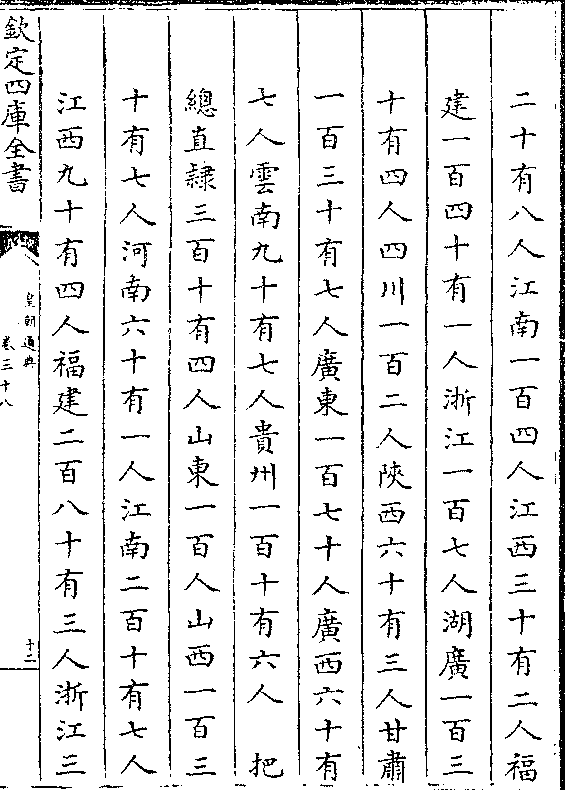 二十有八人江南一百四人江西三十有二人福
建一百四十有一人浙江一百七人湖廣一百三
十有四人四川一百二人陜西六十有三人甘肅
一百三十有七人廣東一百七十人廣西六十有
七人雲南九十有七人貴州一百十有六人　把
總直隸三百十有四人山東一百人山西一百三
十有七人河南六十有一人江南二百十有七人
江西九十有四人福建二百八十有三人浙江三
欽定四庫全書
皇朝通典
卷三十八
十二